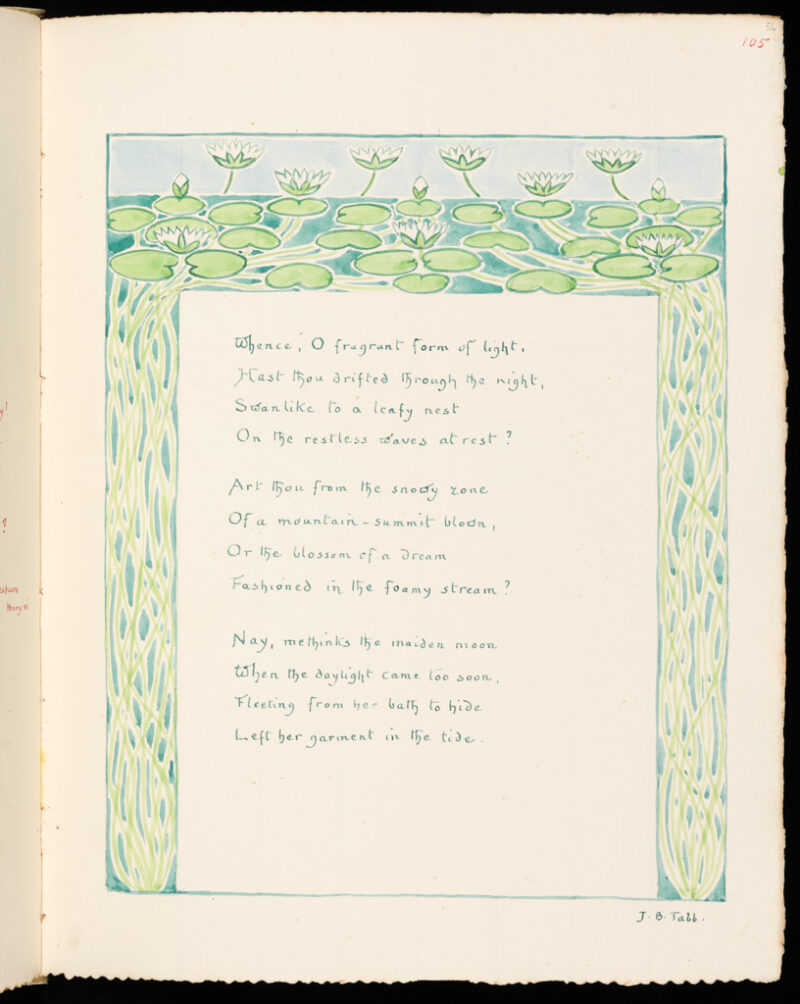 54
105
Whence, O fragrant form of light,
Hast thou drifted through the night,
Swanlike to a leafy nest
On the restless waves at rest?
Art thou from the snowy zone
Of a mountain-summit blown,
Or the blossom of a dream
Fashioned in the foamy stream?
Nay, methinks the maiden moon
When the daylight came too soon,
Fleeting from her bath to hide
Left her garment in the tide.
J. B. Tabb.
y!
?
Henry VI